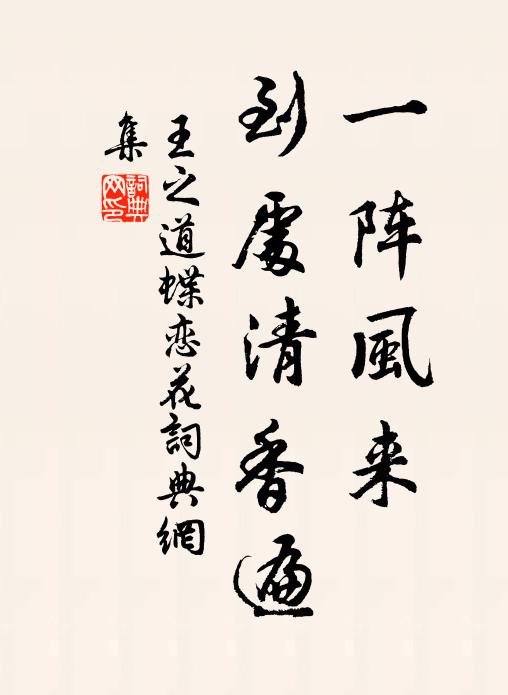 一阵風来
到處清香遍
王之道蝶恋花詞典網
集
詞典
网印